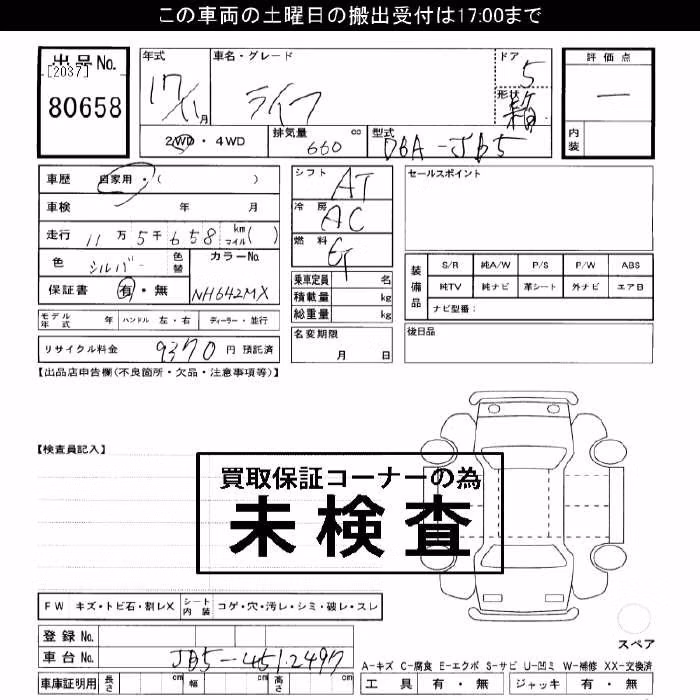 この車両の土曜日の搬出受付は17:00まで
出品No.
[2037]
80658
年式
17/11月
車名・グレード
ライフ
ドア
5
形状
箱
評価点
—
内装
2WD・4WD
排気量
660 cc
型式
DBA-JB5
車歴 自家用・( )
車検 年 月
走行 11万5千658 km マイル( )
色 シルバー 色替 カラーNo.
保証書 有・無 NH642MX
モデル年式 年 ハンドル 左・右 ディーラー・並行
リサイクル料金 9370 円 預託済
シフト AT
冷房 AC
燃料 G
乗車定員 名
積載量 kg
総重量 kg
名変期限
月 日
セールスポイント
装備品
S/R 純A/W P/S P/W ABS
純TV 純ナビ 革シート 外ナビ エアB
ナビ型番:
後日品
【出品店申告欄(不良箇所・欠品・注意事項等)】
【検査員記入】
買取保証コーナーの為
未検査
FW キズ・トビ石・割レX シート内装 コゲ・穴・汚レ・シミ・破レ・スレ
登録No.
車台No. JB5-4512497
車庫証明用 長さ cm 幅 cm 高さ cm
スペア
A-キズ C-腐食 E-エクボ S-サビ U-凹ミ W-補修 XX-交換済
工具 有・無 ジャッキ 有・無